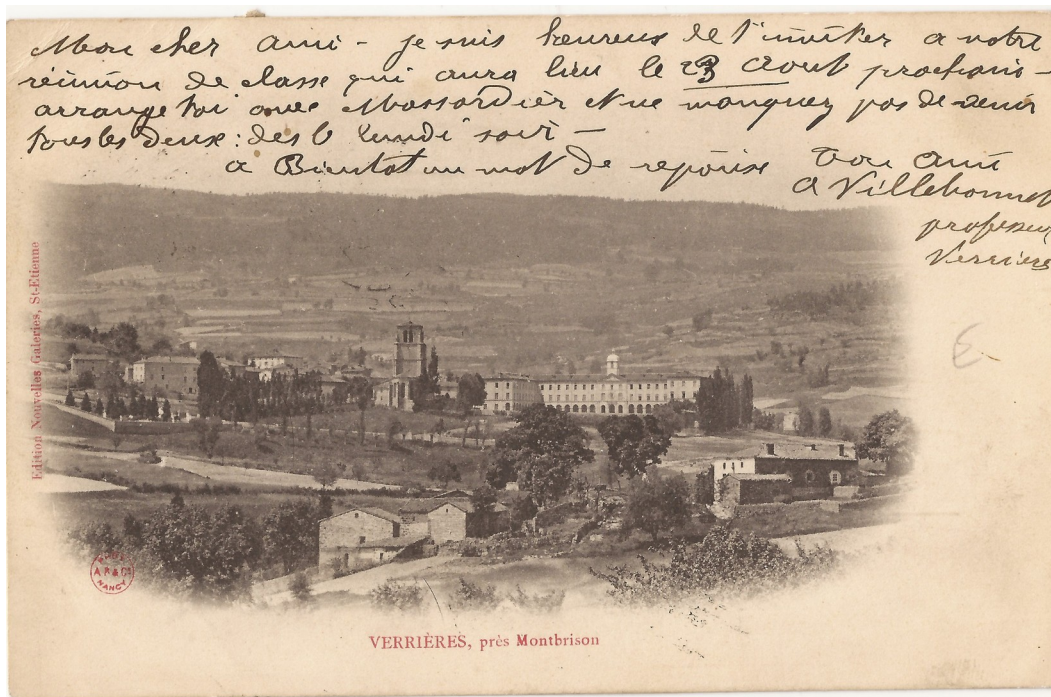 Mon cher ami - je suis heureux de t'inviter a notre
réunion de classe qui aura lieu le 23 Aout prochain -
arrange toi avec Massardier et ne manquez pas de venir
tous les deux : dès le lundi soir -
a Bientot un mot de reponse Ton ami
A Villebonnet
professeur
Verrieres
Edition Nouvelles Galeries, St-Etienne
A.B & Cie
NANCY
VERRIÈRES, près Montbrison